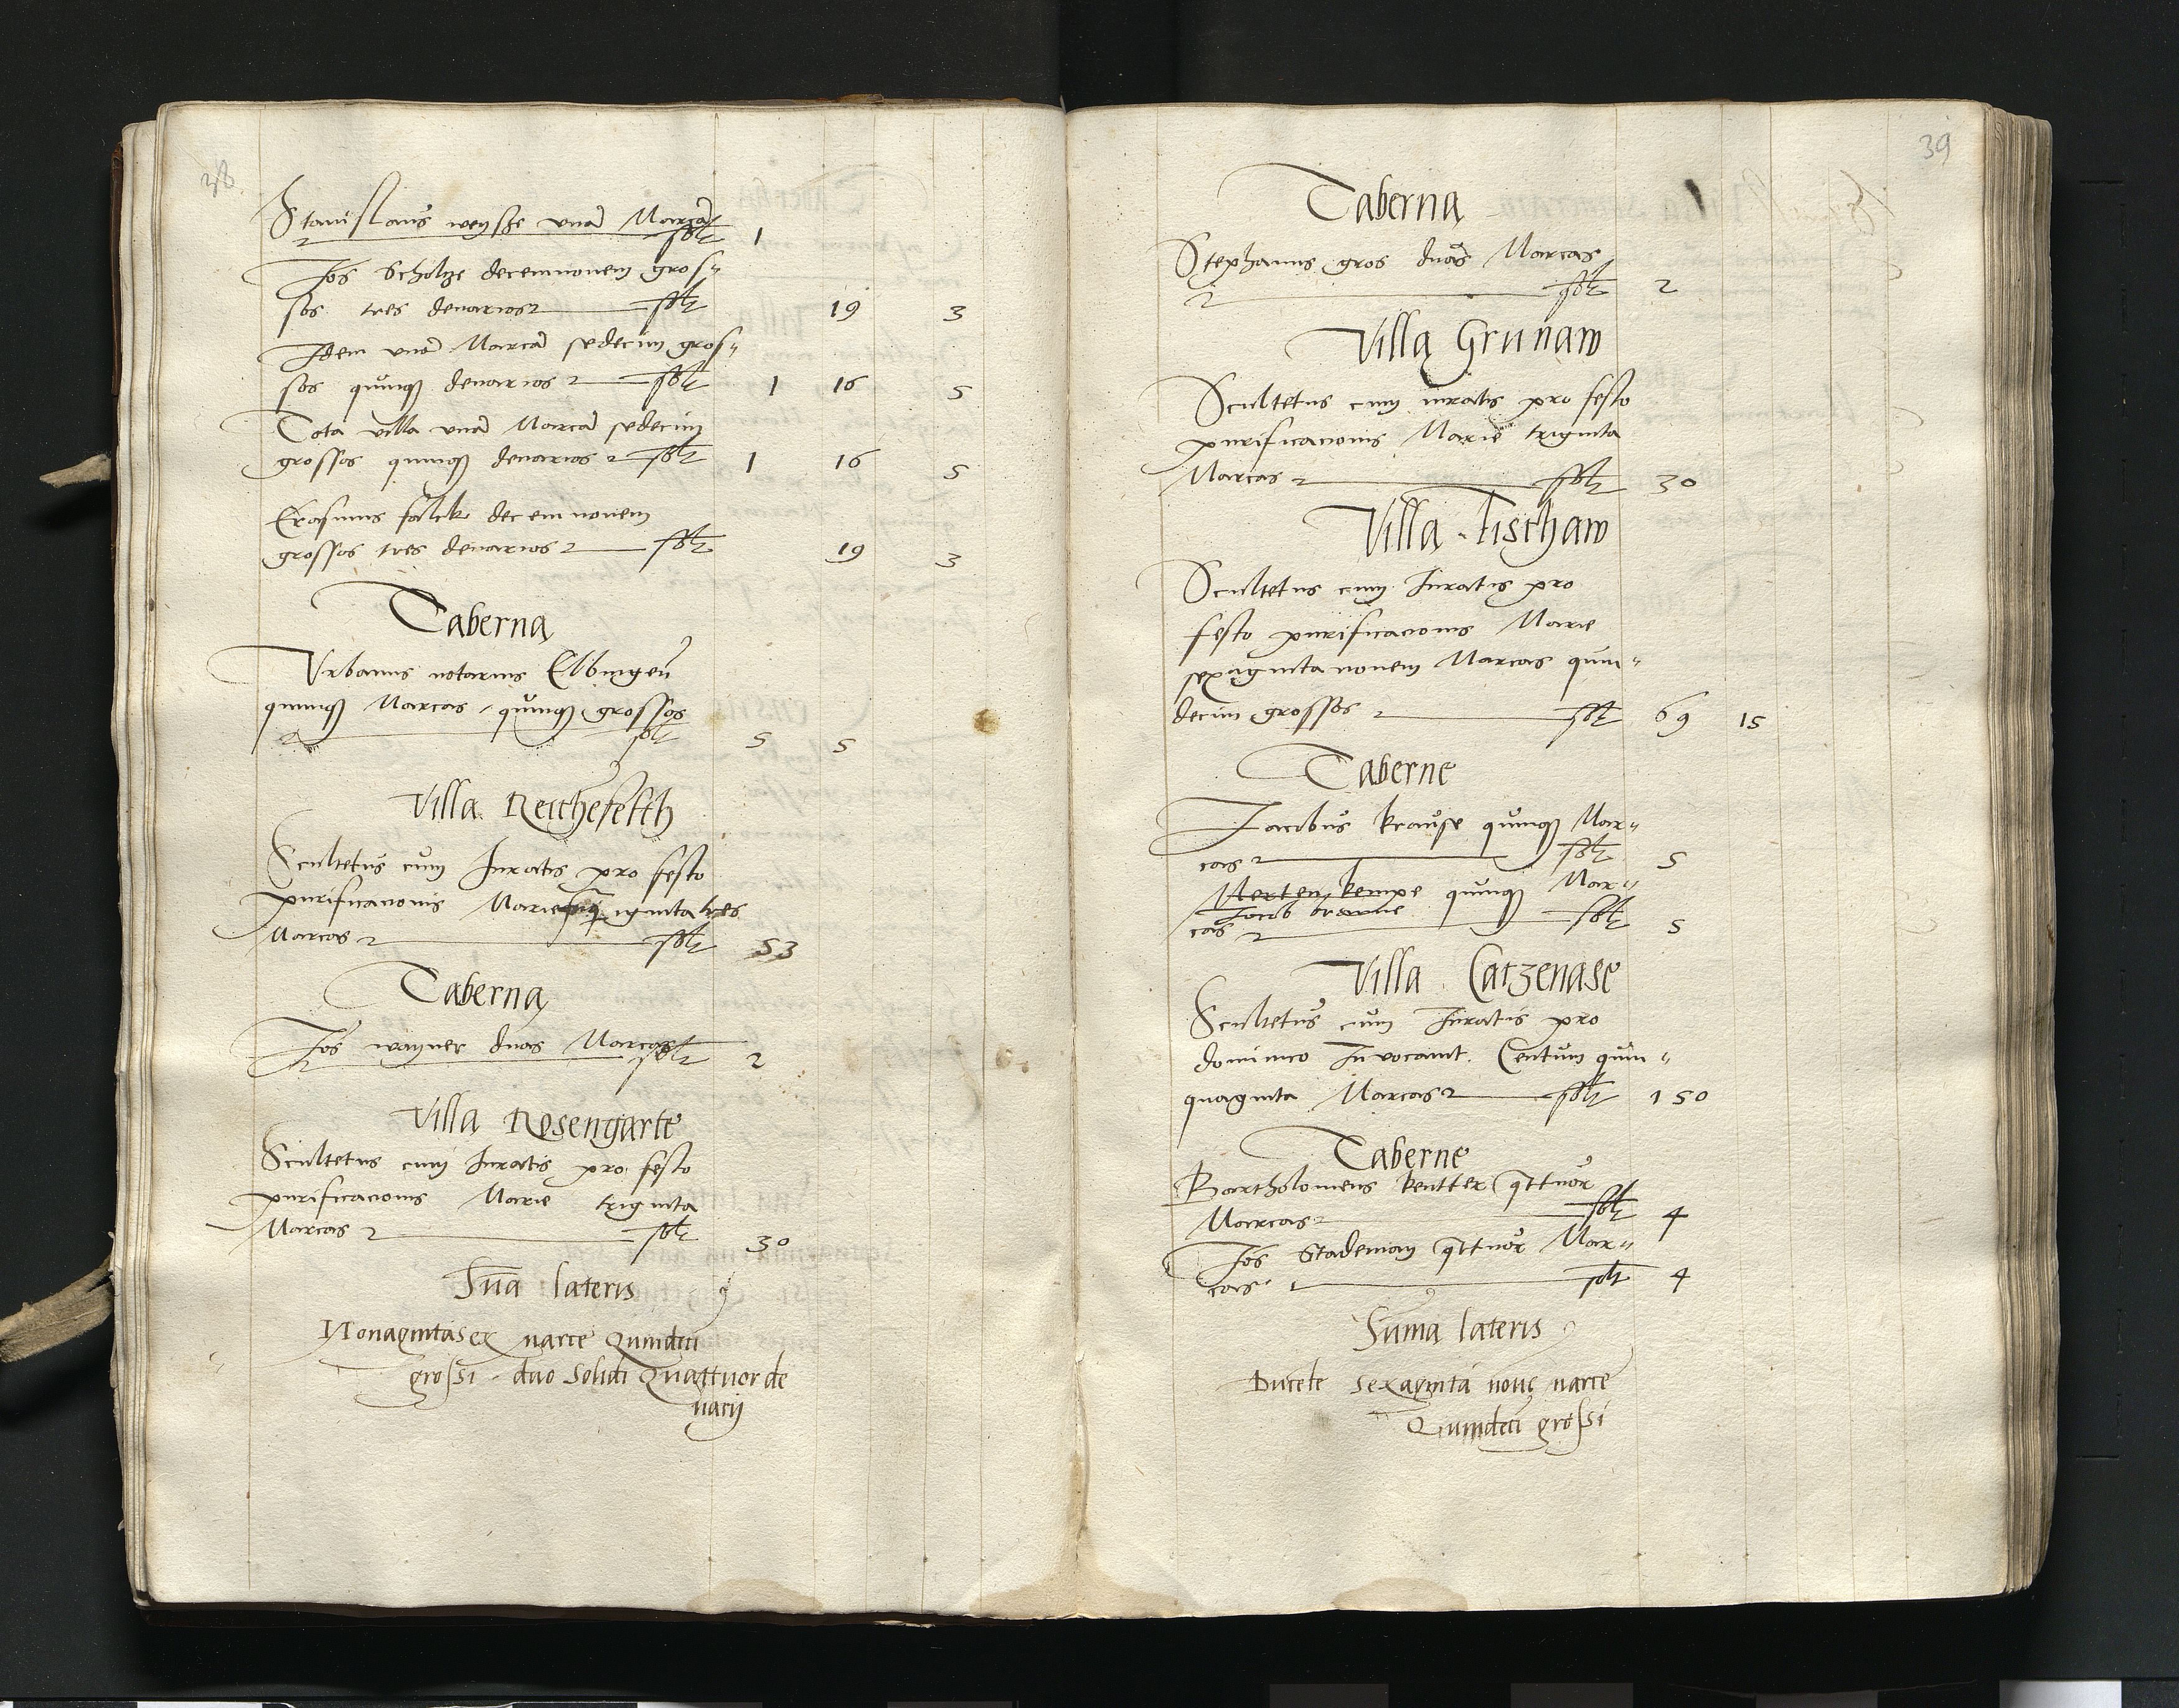 38.
Stanislaus weysse vna Marca
solt 1
Jos Scholtze decemnouem gros„
sos tres denarios solt 19 3
Idem vna Marca sedecim gros„
sos quinq denarios solt 1 16 5
Tota villa vna Marca sedecim
grossos quinq denarios solt 1 16 5
Erasmus falck decemnouem
grossos tres denarios solt 19 3
Taberna
Vrbanus notarius Elbingen
quinq Marcas quinq grossos
solt 5 5
Villa
Scultetus cum Iuratis pro festo
purificacionis Marie iginta tres
Marcas solt 53
Taberna
Jos wayner duas Marcas
solt 2
Villa Rosengarte
Scultetus cum Iuratis pro festo
purificacionis Marie triginta
Marcas solt 30
Sua lateris
Nonagintasex marce Quindeci
grossi duo solidi Quattuor de
narij
39
Taberna
Stephanus gros duas Marcas
solt 2
Villa Grunaw
Scultetus cum iuratis pro festo
purificacionis Marie triginta
Marcas solt 30
Villa Fischaw
Scultetus cum Iuratis pro
festo purificacionis Marie
sexaginta nouem Marcas quin„
decim grossos solt 69 15
Taberne
Jacobus krause quinq Mar„
cas solt 5
Merten kempe quinq Mar„
Jacob
cas solt 5
Villa Catzenase
Scultetus cum Iuratis pro
dominico Inuocauit Centum quin„
quaginta Marcas solt 150
Taberne
Bartholomeus kentter qttuor
Marcas solt 4
Jos Stademan qttuor Mar„
cas solt 4
Suma lateris
Ducete sexaginta noue marce
Quindeci grossi